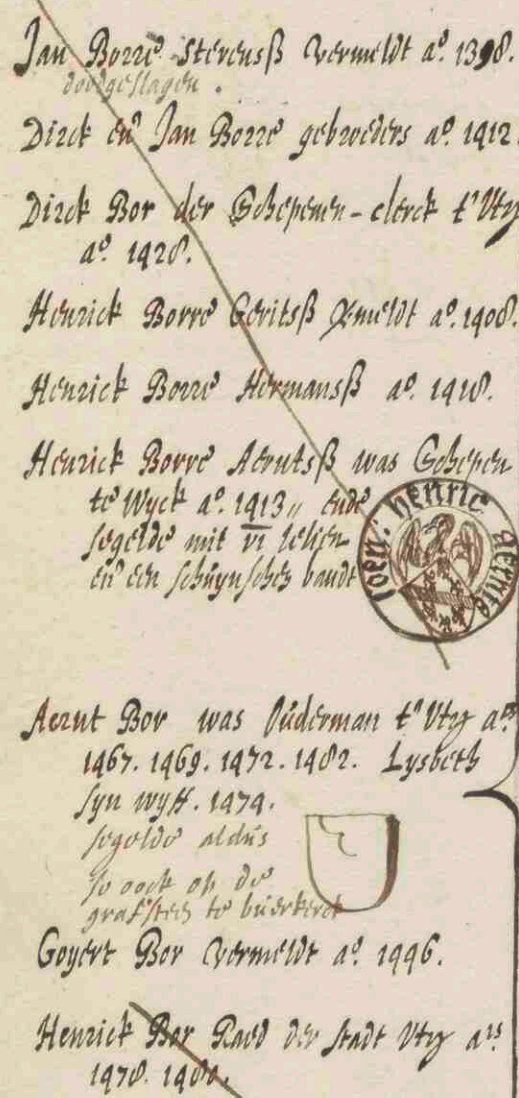 Jan Borre Stevensß vermeldt aº. 1398.
doodgeslagen.
Dirck en̄ Jan Borre gebroeders aº. 1412.
Dirck Bor der Schepenen-clerck t'Utrz
aº. 1428.
Henrick Borre Geritsß vmeldt aº. 1408.
Henrick Borre Hermansß aº. 1418.
Henrick Borre Aerntsß was Schepen
te Wyck aº. 1413,, ende
segelde mit VI lelien
en̄ een schuynschen bandt
henric aernts
Aernt Bor was Oüderman t'Utrz aºs
1467. 1469. 1472. 1482. Lysbeth
syn wyff. 1474.
segelde aldus
so oock op de
graf steen te buerkerck
Goyert Bor vermeldt aº. 1446.
Henrick Bor Raed der stadt Utrz aºs
1478. 1480.